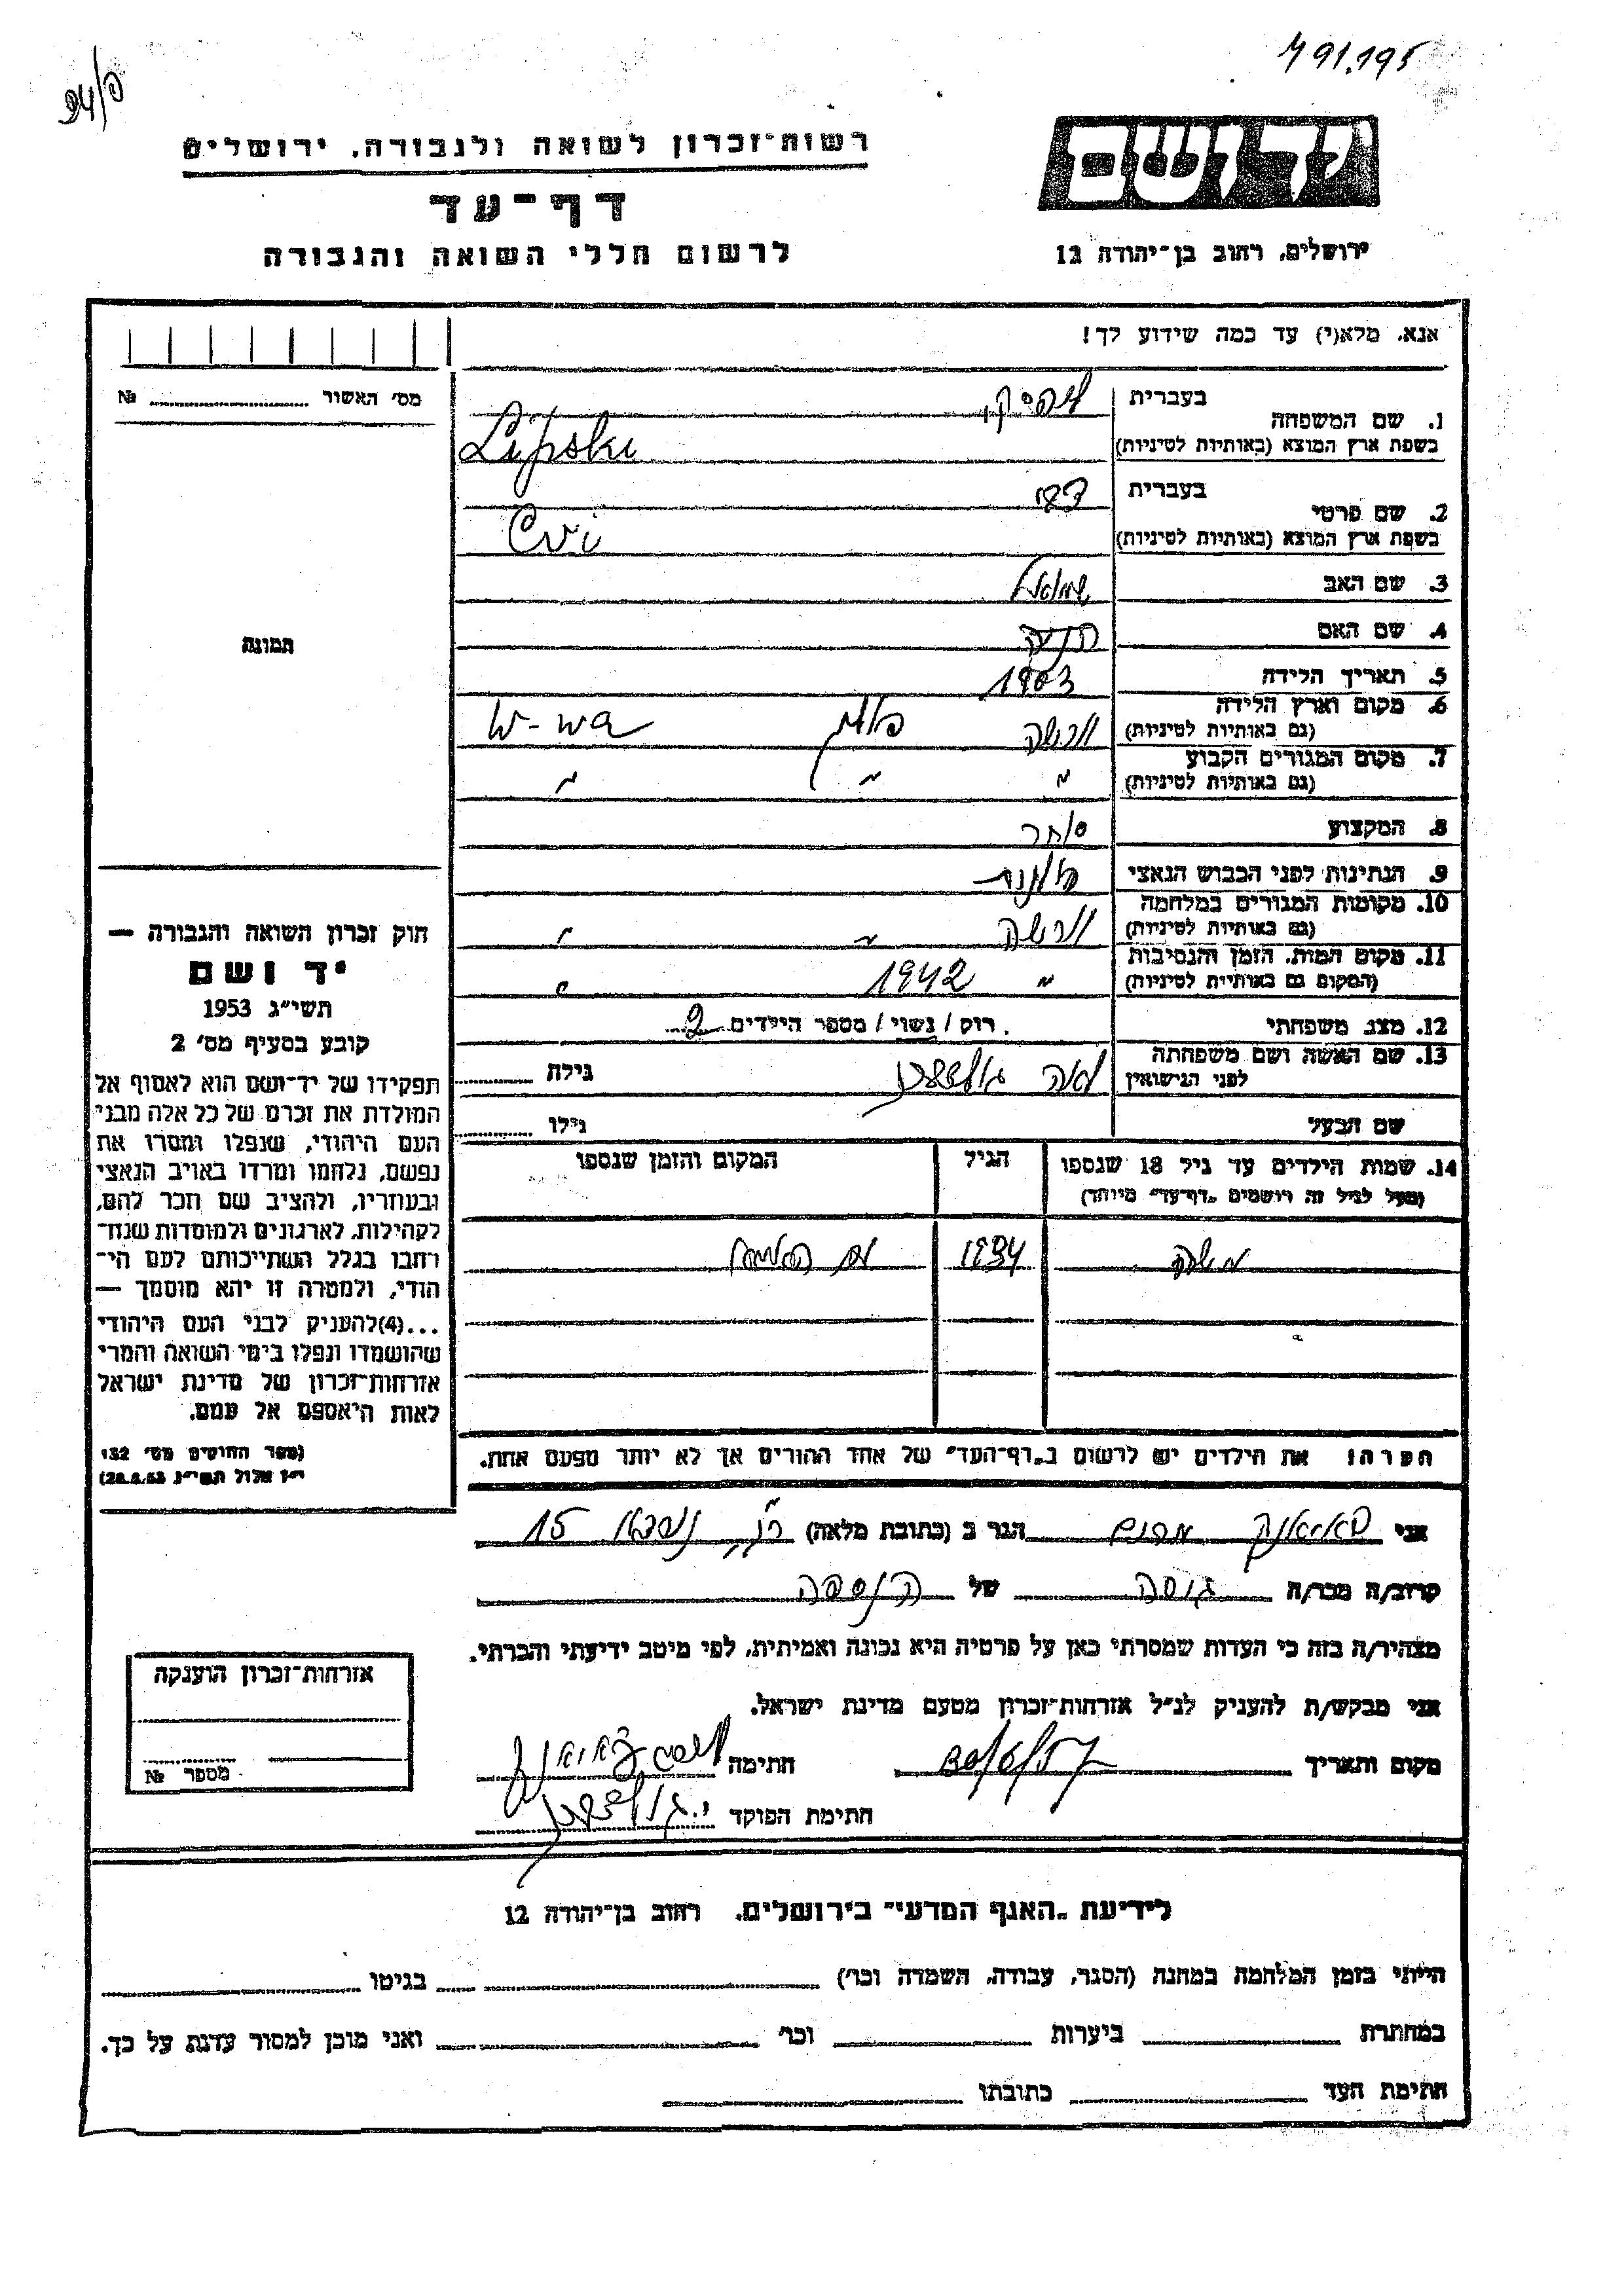 791.195
94/פ
רשות-זכרון לשואה ולגבורה, ירושלים
דף-עד
לרשום חללי השואה והגבורה
יד ושם
ירושלים, רחוב בן-יהודה 12
אנא, מלא(י) עד כמה שידוע לך!
מס' האשור № 
תמונה
1. שם המשפחה בעברית ליפסקי
בשפת ארץ המוצא (באותיות לטיניות) Lipski
2. שם פרטי בעברית צבי
בשפת ארץ המוצא (באותיות לטיניות) Cvi
3. שם האב שמואל
4. שם האם
5. תאריך הלידה 1903
6. מקום וארץ הלידה (גם באותיות לטיניות) ורשה פולין W-wa
7. מקום המגורים הקבוע (גם באותיות לטיניות) " " "
8. המקצוע סוחר
9. הנתינות לפני הכבוש הנאצי פולנית
10. מקומות המגורים במלחמה (גם באותיות לטיניות) ורשה " "
11. מקום המות, הזמן והנסיבות (המקום גם באותיות לטיניות) " 1942 "
12. מצב משפחתי רוק / נשוי / מספר הילדים 2
13. שם האשה ושם משפחתה לפני הנישואין לאה גולדשטיין גילה
שם הבעל גילו
14. שמות הילדים עד גיל 18 שנספו (מעל לגיל זה רושמים "דף-עד" מיוחד) הגיל המקום והזמן שנספו
משה 1934
הערה! את הילדים יש לרשום ב"דף-העד" של אחד ההורים אך לא יותר מפעם אחת.
חוק זכרון השואה והגבורה —
יד ושם
תשי"ג 1953
קובע בסעיף מס' 2
תפקידו של יד-ושם הוא לאסוף אל
המולדת את זכרם של כל אלה מבני
העם היהודי, שנפלו ומסרו את
נפשם, נלחמו ומרדו באויב הנאצי
ובעוזריו, ולהציב שם וזכר להם,
לקהילות, לארגונים ולמוסדות שנח-
רחבו בגלל השתייכותם לעם הי-
הודי, ולמטרה זו יהא מוסמך —
...(4)להעניק לבני העם היהודי
שהושמדו ונפלו בימי השואה והמרי
אזרחות-זכרון של מדינת ישראל
לאות היאספם אל עמם.
(ספר החוקים מס' 132
י"ז אלול תשי"ג 28.8.53)
אני מרים הגר ב (כתובת מלאה) 15
קרוב/ה מכר/ה גיסה של הנספה
מצהיר/ה בזה כי העדות שמסרתי כאן על פרטיה היא נכונה ואמיתית, לפי מיטב ידיעתי והכרתי.
אני מבקש/ת להעניק לנ"ל אזרחות-זכרון מטעם מדינת ישראל.
מקום ותאריך חתימה
חתימת הפוקד י. גולדשטיין
אזרחות-זכרון הוענקה
מספר №
לידיעת "האגף המדעי" בירושלים, רחוב בן-יהודה 12
הייתי בזמן המלחמה במחנה (הסגר, עבודה, השמדה וכו') בגיטו
במחתרת ביערות וכו' ואני מוכן למסור עדות על כך.
חתימת העד כתובתו